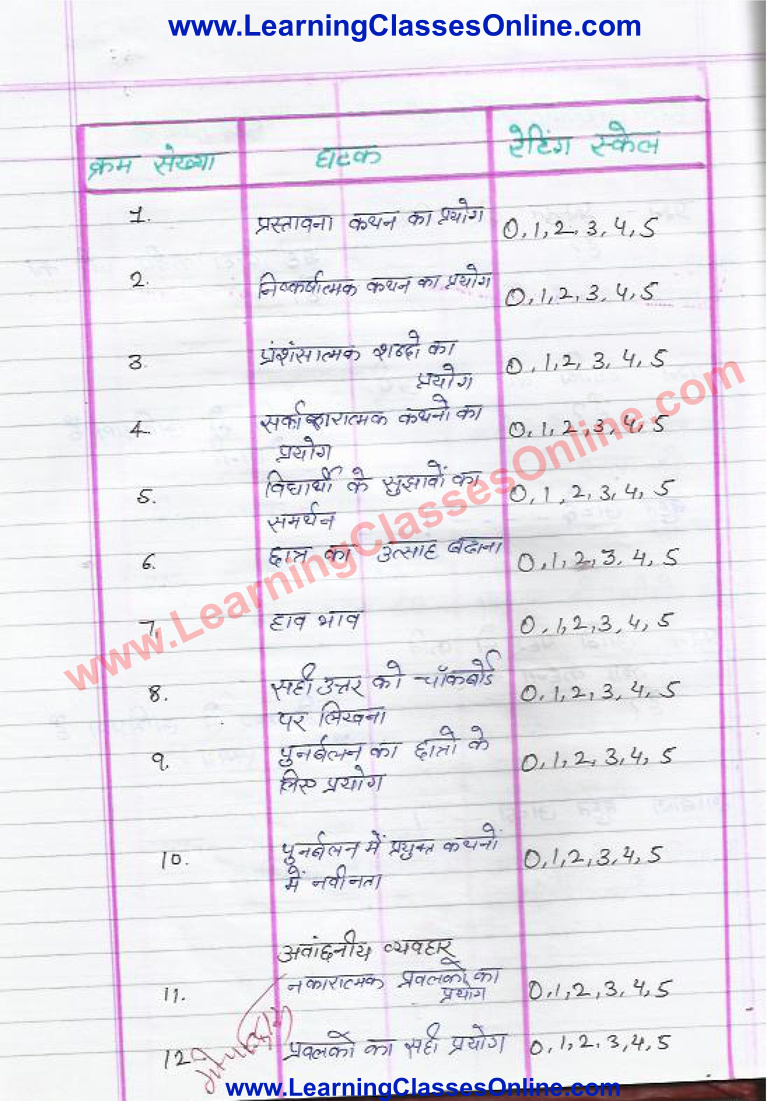 www.LearningClassesOnline.com
क्रम संख्या घटक रेटिंग स्केल
1. प्रस्तावना कथन का प्रयोग 0,1,2,3,4,5
2. निष्कर्षात्मक कथन का प्रयोग 0,1,2,3,4,5
3. प्रंशंसात्मक शब्दो का 0,1,2,3,4,5
प्रयोग
4. कथनो का 0,1,2,3,4,5
प्रयोग
5. विद्यार्थी के सुझावों का 0,1,2,3,4,5
समर्थन
6. छात्र का उत्साह बढाना 0,1,2,3,4,5
7. हाव भाव 0,1,2,3,4,5
8. सही उत्तर को चॉकबोर्ड 0,1,2,3,4,5
पर लिखना
9. पुनर्बलन का छात्रो के 0,1,2,3,4,5
लिए प्रयोग
10. पुनर्बलन में प्रयुक्त कथनों 0,1,2,3,4,5
में नवीनता
अवांछनीय व्यवहार
11. नकारात्मक प्रबलकों का 0,1,2,3,4,5
प्रयोग
12. प्रबलकों का सही प्रयोग 0,1,2,3,4,5
www.LearningClassesOnline.com
www.LearningClassesOnline.com